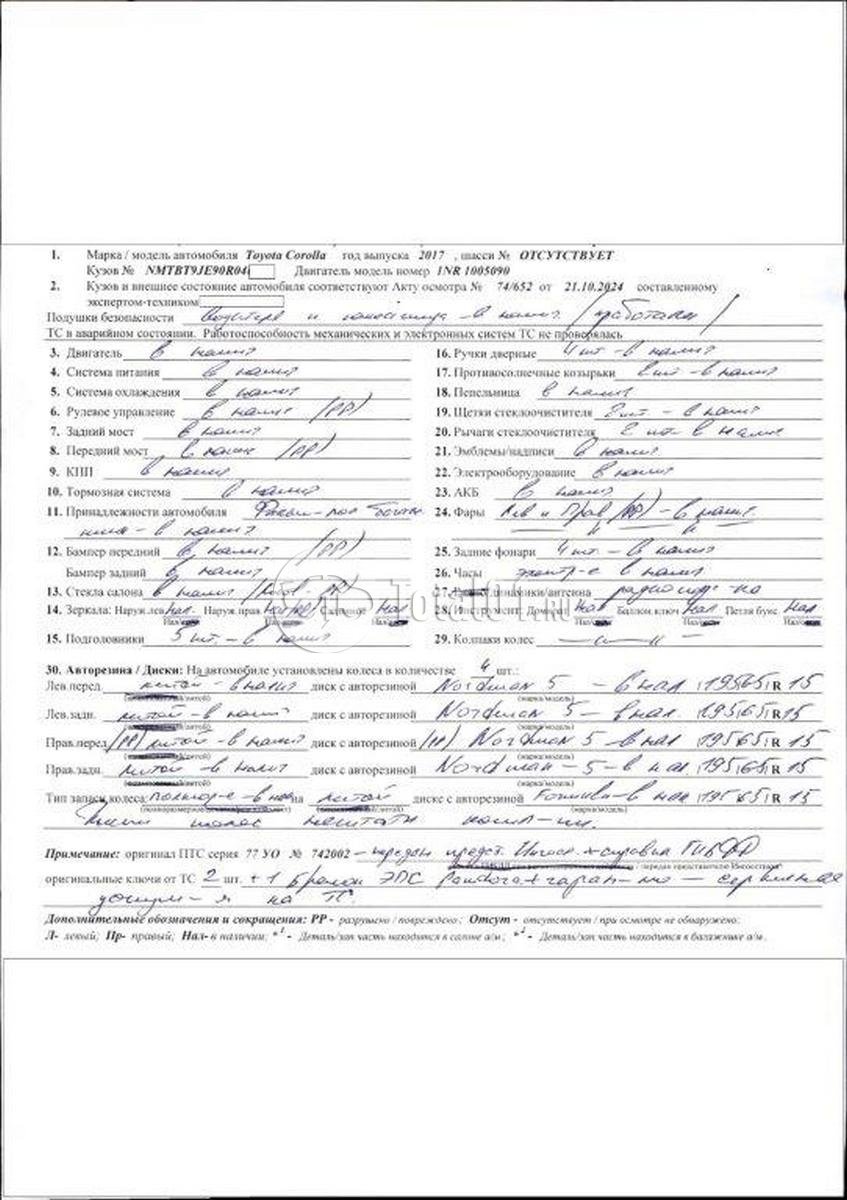 1. Марка / модель автомобиля Toyota Corolla год выпуска 2017 , шасси № ОТСУТСТВУЕТ
Кузов № NMTBT9JE90R04 Двигатель модель номер 1NR 1005090
2. Кузов и внешнее состояние автомобиля соответствуют Акту осмотра № 74/652 от 21.10.2024 составленному
экспертом-техником
Подушки безопасности водителя и пассажира - в налич. /сработали/
ТС в аварийном состоянии. Работоспособность механических и электронных систем ТС не проверялась
3. Двигатель в налич
4. Система питания в налич
5. Система охлаждения в налич
6. Рулевое управление в налич /РР/
7. Задний мост в налич
8. Передний мост в налич /РР/
9. КПП в налич
10. Тормозная система в налич
11. Принадлежности автомобиля
в налич
12. Бампер передний в налич /РР/
Бампер задний в налич
13. Стекла салона в налич
14. Зеркала: Наруж.лев нал. Наруж.прав. Салонное нал
15. Подголовники 5 шт. - в налич
16. Ручки дверные 4 шт - в налич
17. Противосолнечные козырьки 2 шт - в налич
18. Пепельница в налич
19. Щетки стеклоочистителя 2 шт. - в налич
20. Рычаги стеклоочистителя 2 шт - в налич
21. Эмблемы/надписи в налич
22. Электрооборудование в налич
23. АКБ в налич
24. Фары Лев и Прав /РР/ - в налич.
25. Задние фонари 4 шт. - в налич
26. Часы электр-е в налич
27. динамики/антенна
28. Инструмент: Домкрат нал Баллон.ключ нал Петля букс. нал
29. Колпаки колес
30. Авторезина / Диски: На автомобиле установлены колеса в количестве 4 шт.:
Лев.перед. литой - в налич диск с авторезиной Nordman 5 - в нал. 195/65/R 15
(марка/модель)
Лев.задн. литой - в налич диск с авторезиной Nordman 5 - в нал. 195/65/R 15
(марка/модель)
Прав.перед /РР/ литой - в налич диск с авторезиной /РР/ Nordman 5 - в нал. 195/65/R 15
(марка/модель)
Прав.задн. литой - в налич диск с авторезиной Nordman - 5 - в нал. 195/65/R 15
(марка/модель)
Тип запасн колеса: на литой диске с авторезиной в нал 195/65/R 15
(марка/модель)
Примечание: оригинал ПТС серия 77 УО № 742002 - передан предст.
/ передан представителя Ингосстрах/
оригинальные ключи от ТС 2 шт. + 1 брелок ЭПС Pandora
на ТС.
Дополнительные обозначения и сокращения: РР - разрушено / повреждено ; Отсут - отсутствует / при осмотре не обнаружено;
Л- левый; Пр- правый; Нал- в наличии; *1 - Деталь/зап.часть находится в салоне а/м ; *2 - Деталь/зап.часть находится в багажнике а/м .
Total01.ru